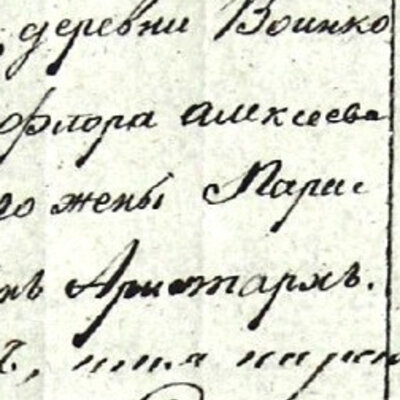 деревни Воинко
Флора Алексеева
го жены Парас
нъ Аристархъ.